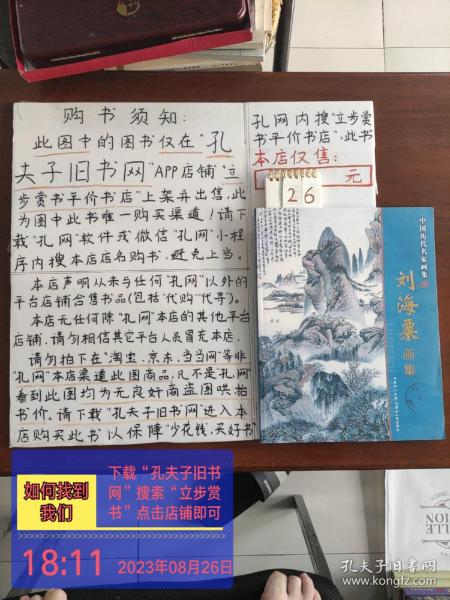 购书须知:
此图中的图书仅在"孔
夫子旧书网"APP店铺"立
步赏书平价书店"上架并出售,此
为图中此书唯一购买渠道!请下
载"孔网"软件或微信"孔网"小程
序内搜本店店名购书,避免上当。
本店声明从未与任何"孔网"以外的
平台店铺合售书品(包括"代购""代寻")。
本店无任何除"孔网"本店的其他平台
店铺,请勿相信其它平台人员冒充本店,
请勿拍下在"淘宝,京东,当当网"等非
"孔网"本店渠道此图商品,凡不是孔网
看到此图均为无良奸商盗图哄抬
书价。请下载"孔夫子旧书网"进入本
店购买此书以保障"少花钱,买好书
孔网内搜"立步赏
书平价书店",此书
本店仅售:
26
元
中国历代名家画集
刘海粟
画集
如何找到
我们
下载“孔夫子旧书
网”搜索“立步赏
书”点击店铺即可
18:11
2023年08月26日
孔夫子旧书网
www.kongfz.com